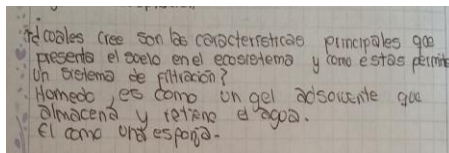 ¿d cuales cree son las características principales que
presenta el suelo en el ecosistema y como estas permite
Un sistema de filtración?
Homedo, es como un gel adsorvente que
almacena y retiene el agua.
El como una esponja.